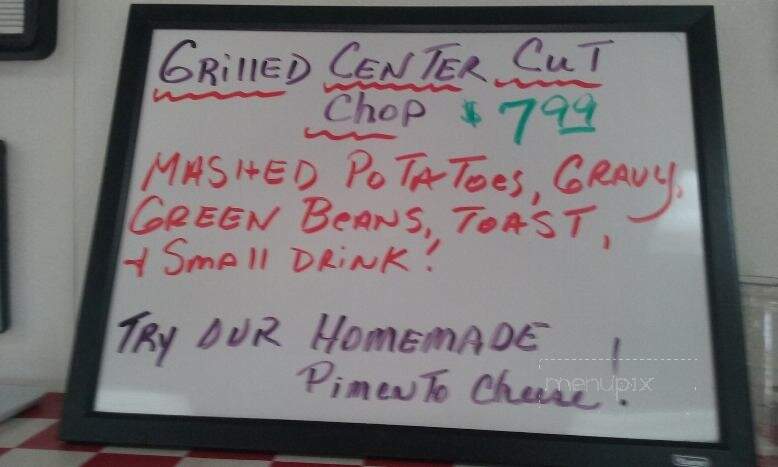 GRillED CENTER CuT
Chop $7.99
MASHED PoTAToes, GRAVY,
GREEN BeANS, TOAST,
+ SMAll DRiNK!
TRY OUR HOMEMADE
PimenTo Cheese!
menupix